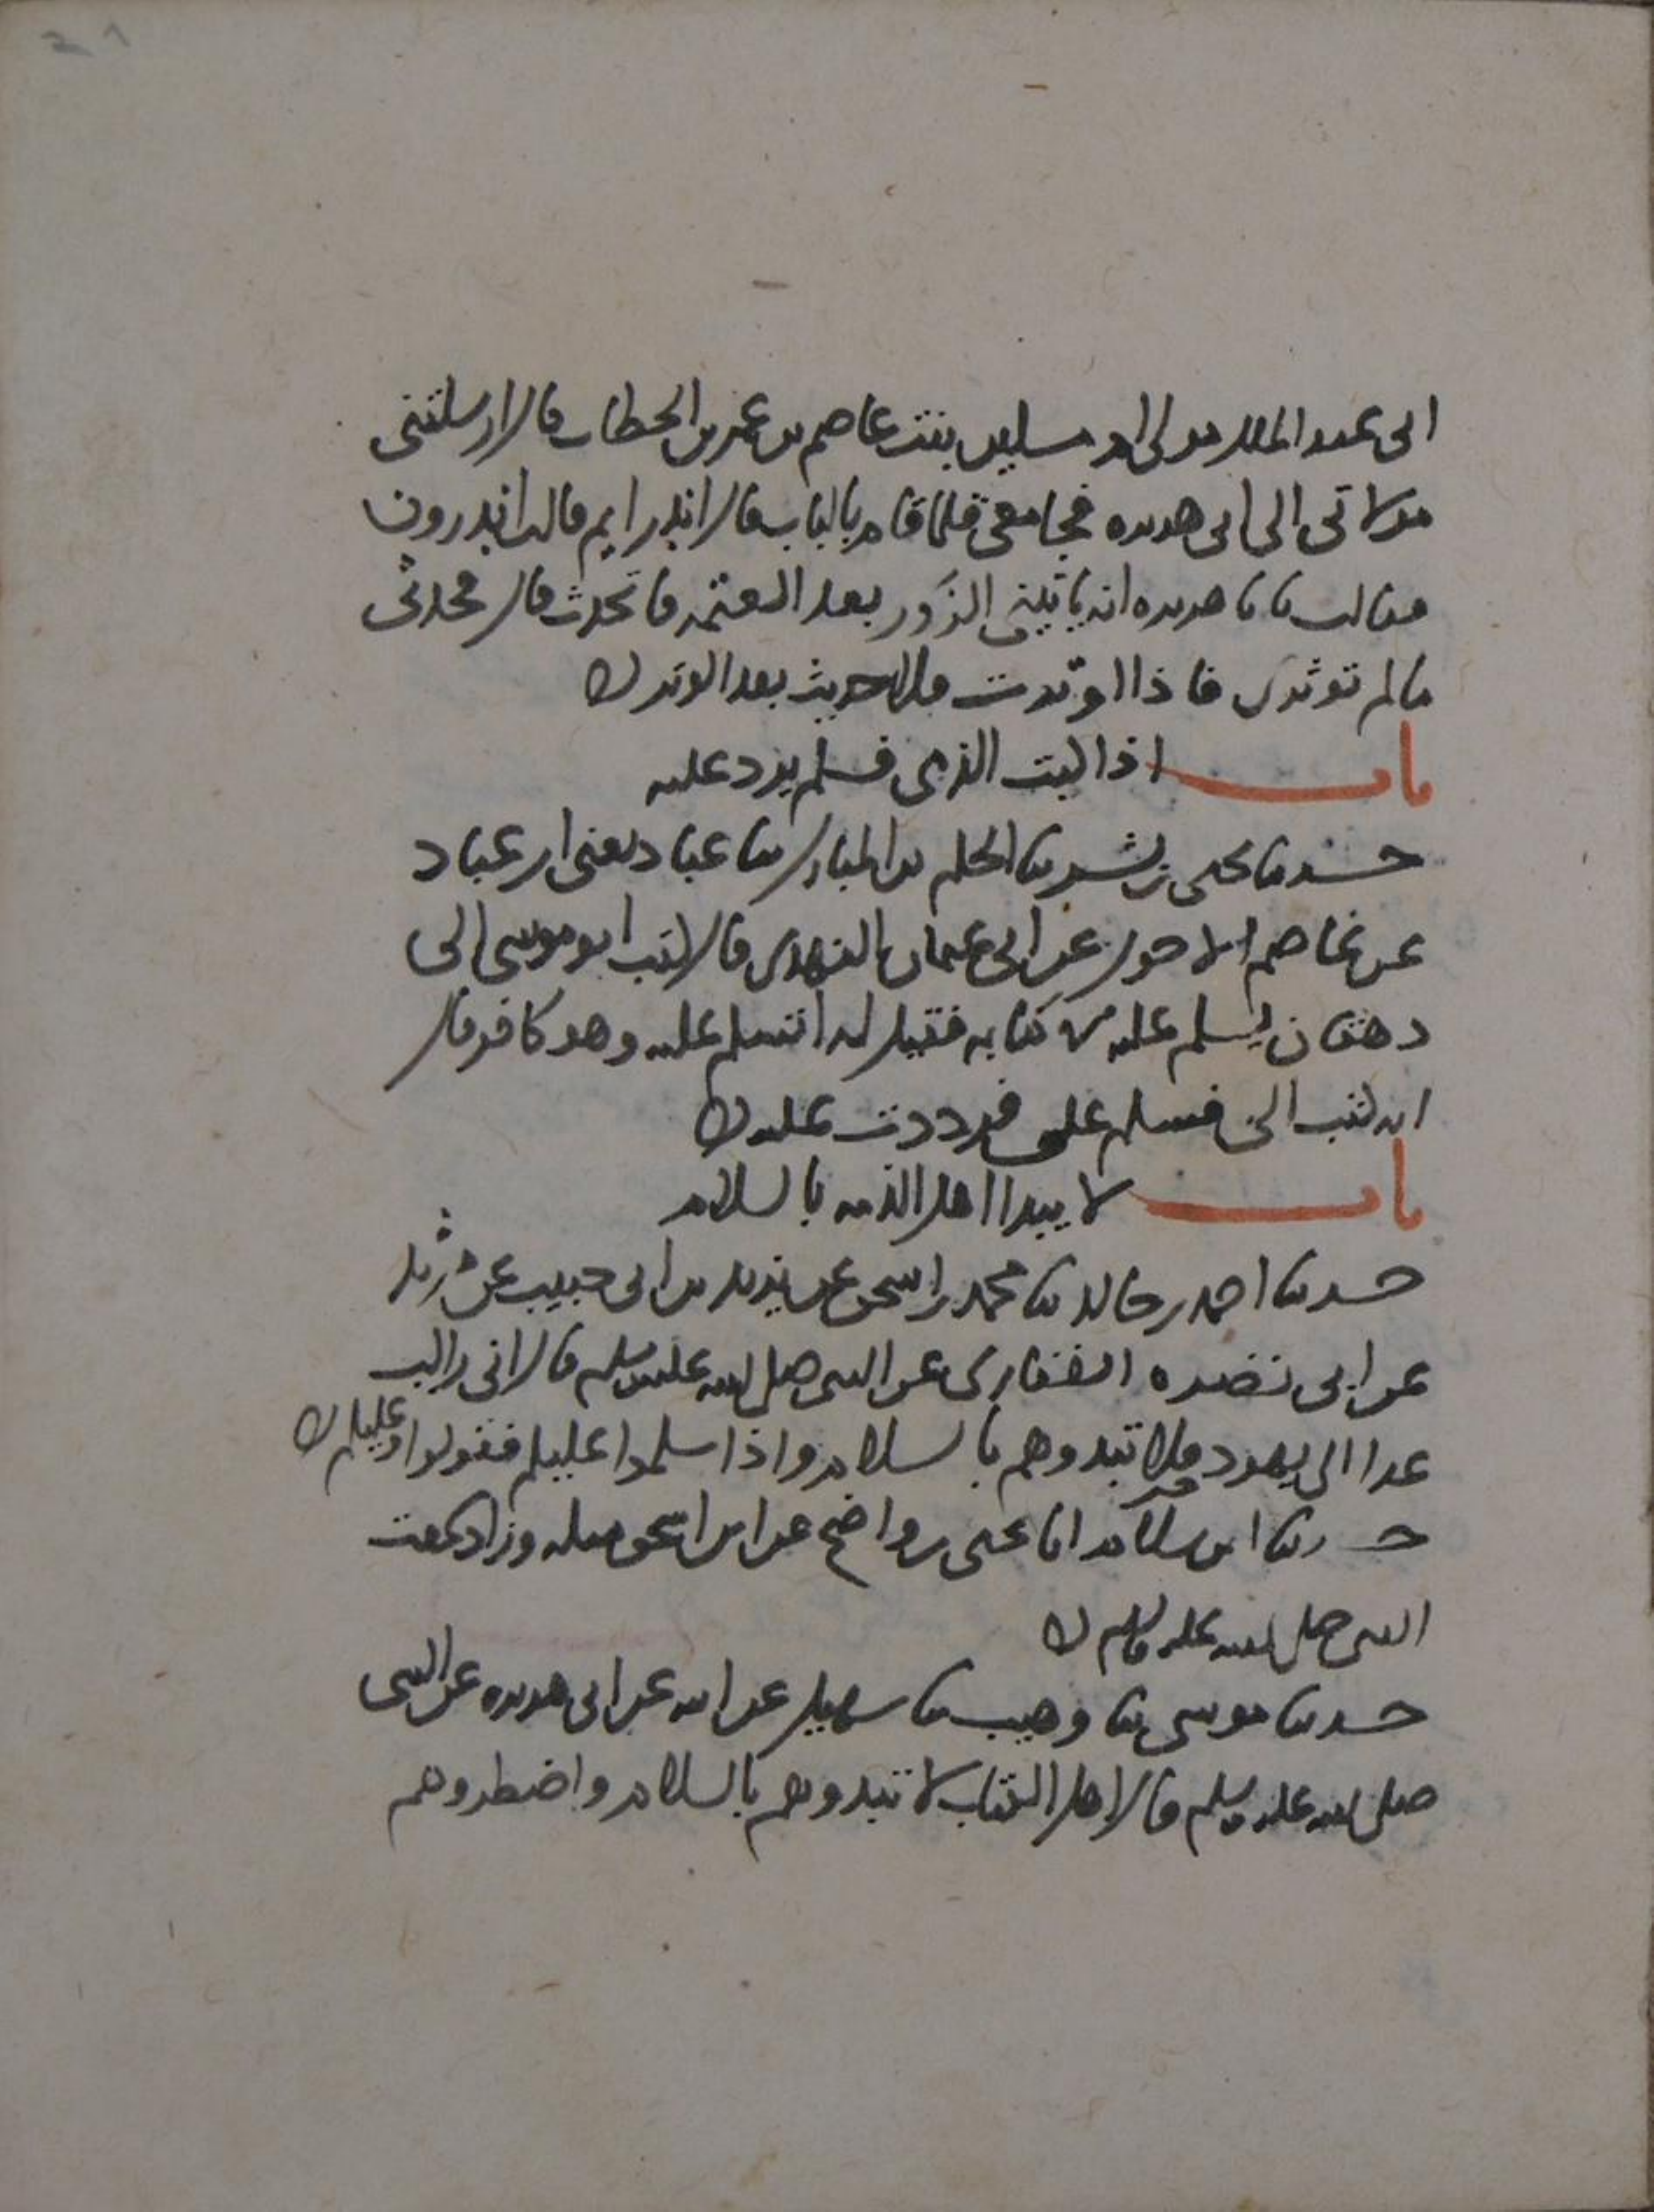 ابى عبد الملك مولى ام مسكين بنت عاصم بن عمر بن الخطاب قال ارسلتنى
مولاتى الى ابى هريرة فجا معى فلما قام بالباب قال اندرايم قالت اندرون
فقالت يا با هريرة انه ياتينى الزور بعد العتمة فاتحدث قال تحدثى
مالم توترى فاذا اوترت فلا حديث بعد الوتر
باب اذا كتب الذمى فسلم يرد عليه
حدثنا يحيى بن بشر ثنا الحكم بن المبارك ثنا عباد يعنى ابن عباد
عن عاصم الاحول عن ابى عثمان النهدى قال كتب ابو موسى الى
دهقان يسلم عليه فى كتابه فقيل له اتسلم عليه وهو كافر قال
انه كتب الى فسلم على فرددت عليه
باب لا يبدا اهل الذمه بالسلام
حدثنا احمد بن خالد ثنا محمد بن اسحق عن يزيد بن ابى حبيب عن مرثد
عن ابى نضره الغفارى عن النبى صلى الله عليه وسلم قال انى راكب
غدا الى يهود فلا تبدوهم بالسلام واذا سلموا عليكم فقولوا وعليكم
حدثنا ابن سلام انا يحيى بن واضح عن ابن اسحق مثله وزاد سمعت
النبى صلى الله عليه وسلم
حدثنا موسى ثنا وهيب ثنا سهيل عن ابيه عن ابى هريرة عن النبى
صلى الله عليه وسلم قال اهل الكتاب لا تبدوهم بالسلام واضطروهم